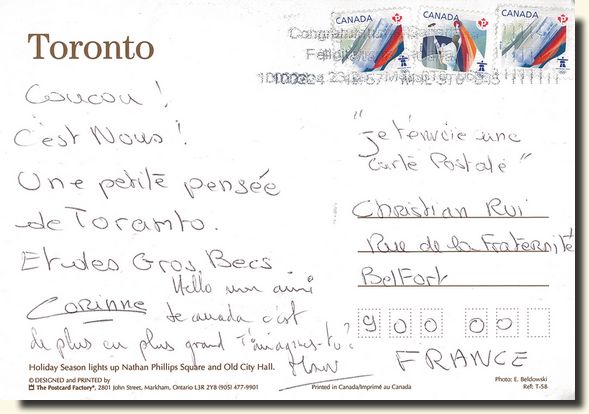 Toronto
CANADA P
CANADA P
CANADA P
Coucou !
C'est Nous !
Une petite pensée
de Toronto.
Et des Gros Becs
Corinne
Hello mon ami
le canada c'est
de plus en plus grand T'imagines-tu ?
"Je t'envoie une
Carte Postale"
Christian Rui
Rue de la Fraternité
Belfort
900 00
FRANCE
Holiday Season lights up Nathan Phillips Square and Old City Hall.
© DESIGNED and PRINTED by
The Postcard Factory®, 2801 John Street, Markham, Ontario L3R 2Y8 (905) 477-9901
Printed in Canada/Imprimé au Canada
Photo: E. Beldowski
Ref: T-58